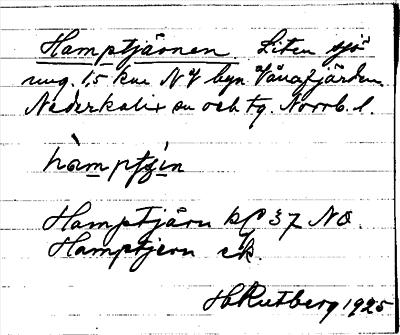 Hamptjärnen Liten sjö
ung. 1,5 km NV byn Vånafjärden
Nederkalix sn och tg. Norrb. l.
hàmptʒin
Hamptjärn kſ 37 NO.
Hamptjern ek.
H Rutberg 1925